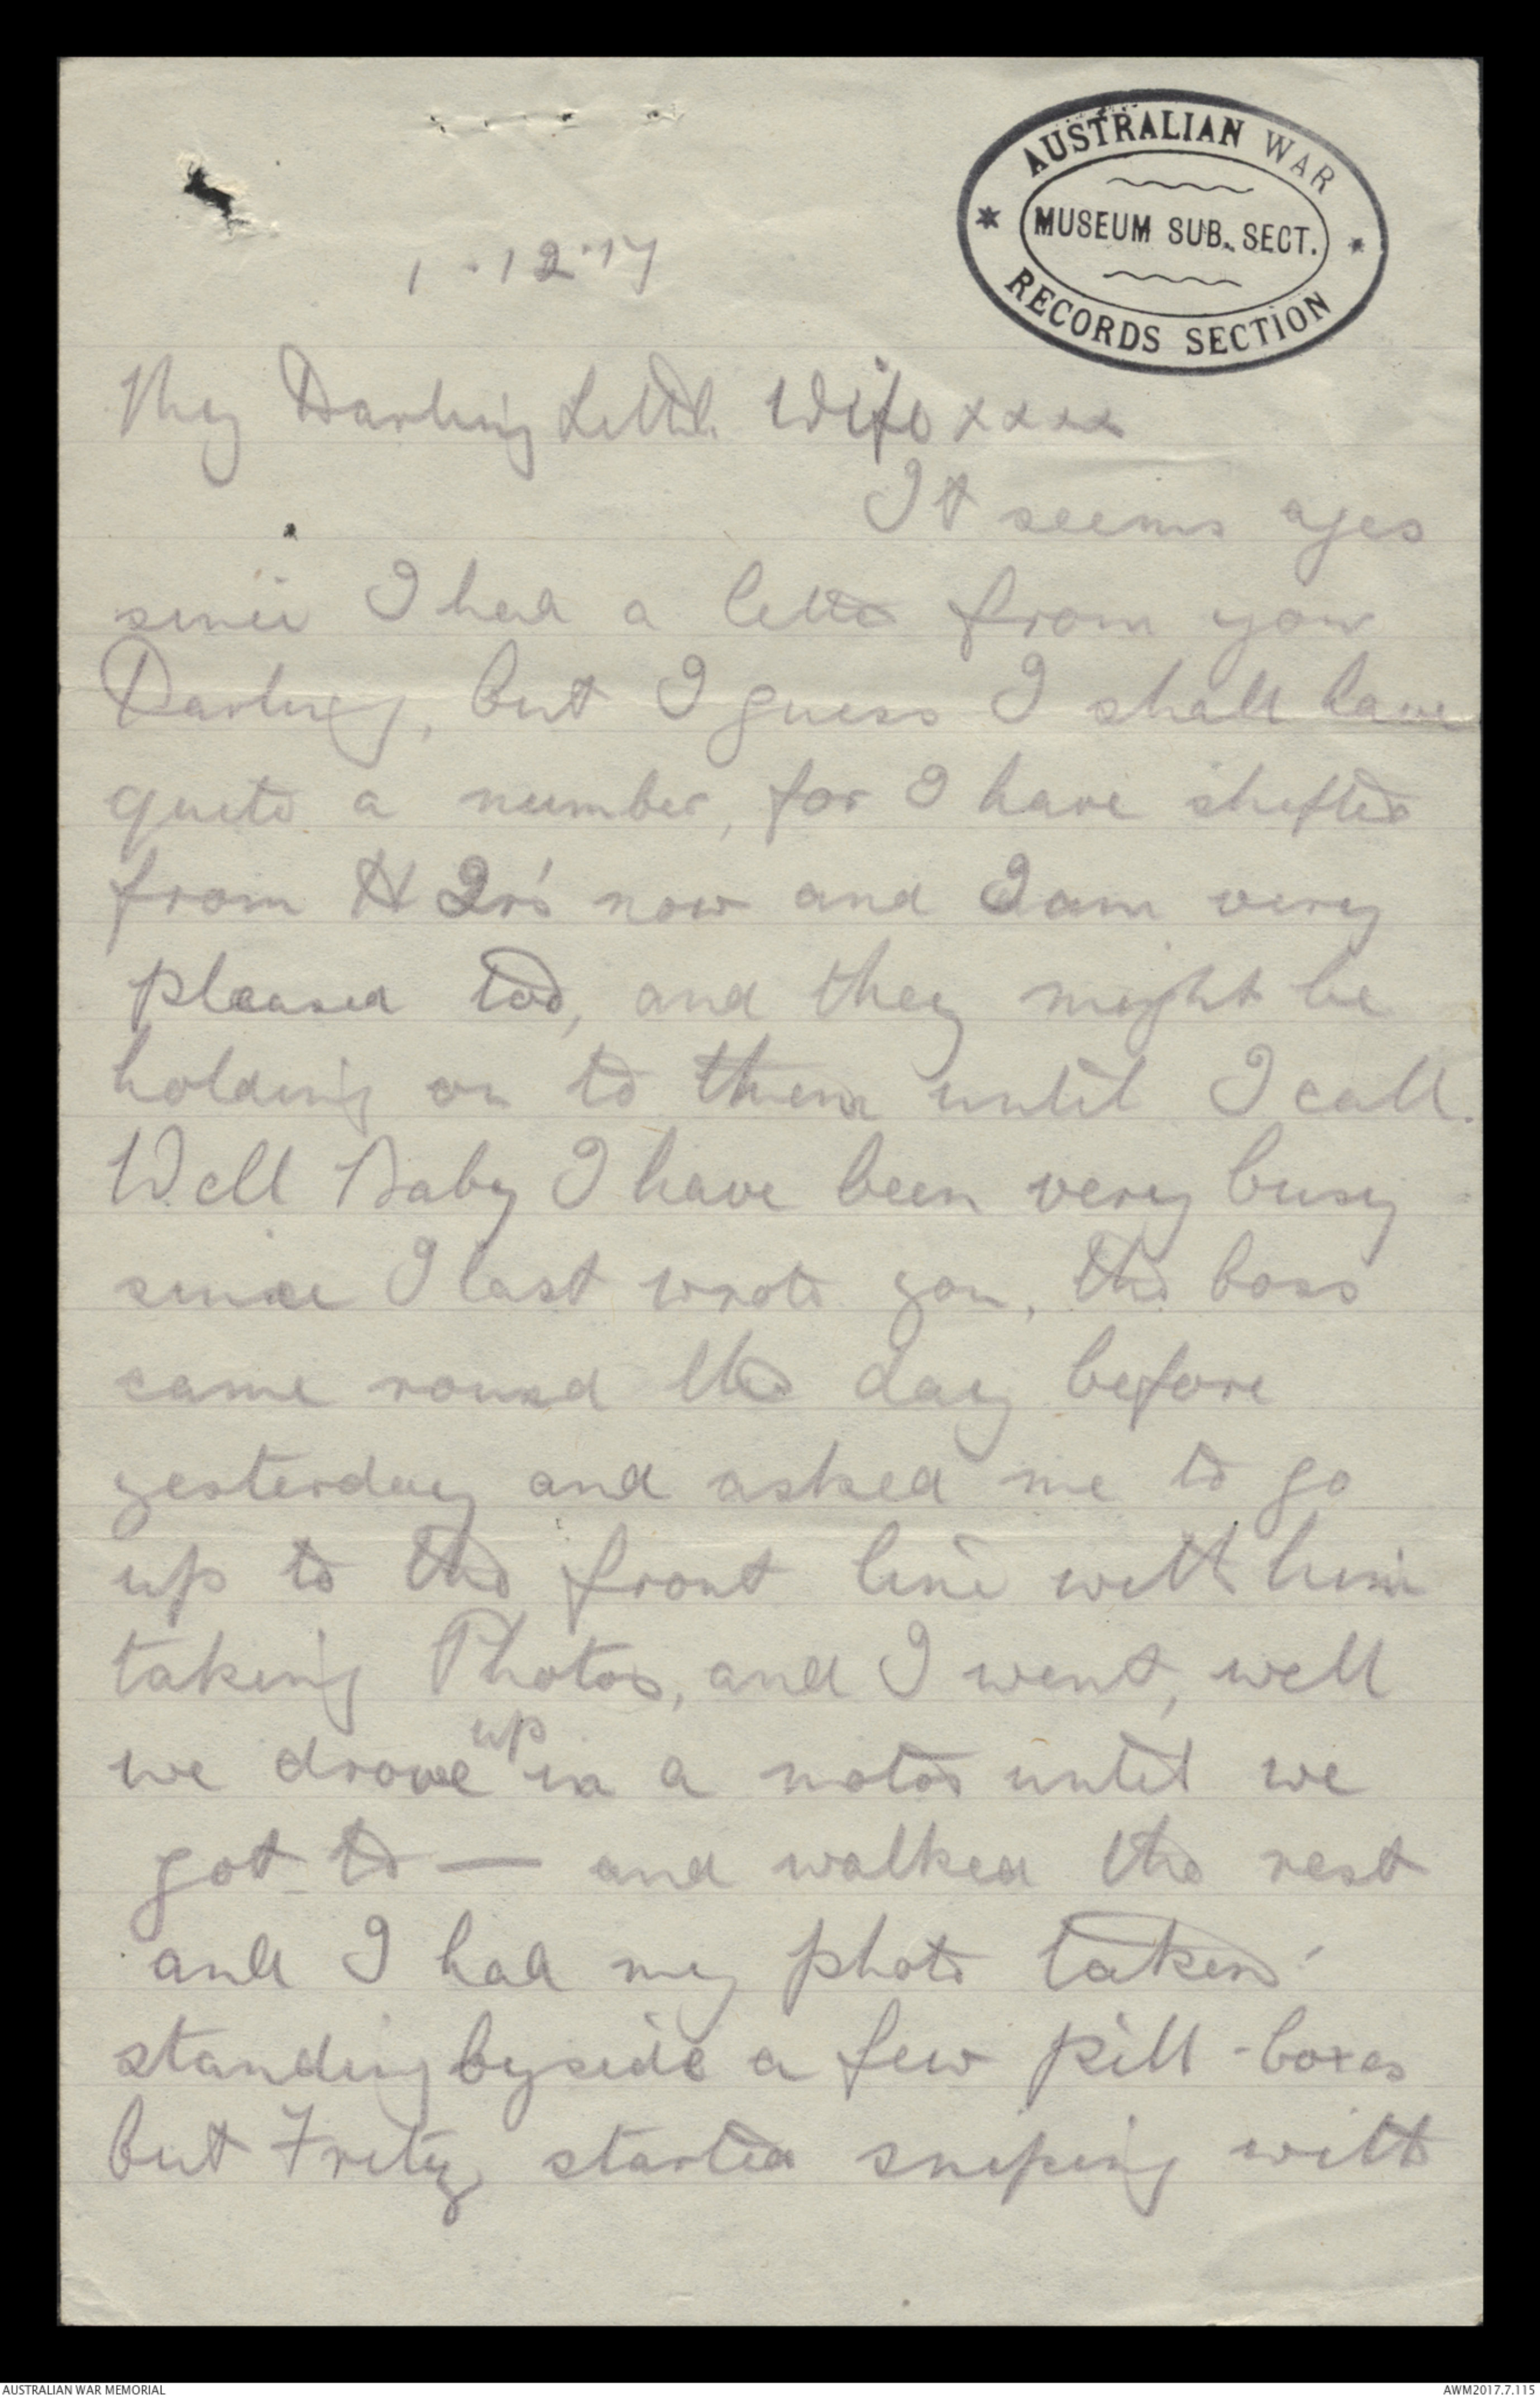 AUSTRALIAN WAR
MUSEUM SUB. SECT.
RECORDS SECTION
1.12.17
My Darling Little Wife xxxx
It seems ages
since I had a letter from you
Darling, but I guess I shall have
quite a number, for I have shifted
from H Qrs now and I am very
pleased too, and they might be
holding on to them until I call.
Well Baby I have been very busy
since I last wrote you, the boss
came round the day before
yesterday and asked me to go
up to the front line with him
taking Photos, and I went, well
we drove up in a motor until we
got to — and walked the rest
and I had my photo taken
standing byside a few pill-boxes
but Fritz started sniping with
AUSTRALIAN WAR MEMORIAL
AWM2017.7.115